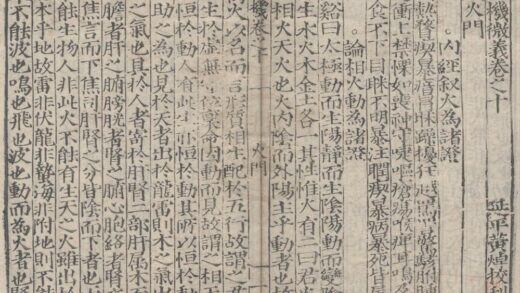 機微義卷之十 延平黃焯校刊
火門
內經叙火為諸證
熱瞀瘈暴瘖冒昧躁擾狂越罵詈驚駭胕腫
衝上禁慄如喪神守嚏嘔瘡瘍喉痺耳鳴及
食不下目昧不明暴注瞤瘈暴病暴死皆屬
論相火動為諸證
谿曰太極動而生陽靜而生陰陽動而變
生水火木金土各一其性惟火有二曰君火
相火天火也火內陰而外陽主乎動者也
機卷之十 火門 一
火以名而言形質相生配於五行故謂之
生於虛無守位禀命因動而見故謂之相天
恒於動人有此生亦恒於動其所以恒於動
助之為也見於天者出於龍雷則木之氣出
之氣也具於人者寄於肝腎二部肝屬木
膽者肝之腑膀胱者腎之腑心胞絡者腎
焦言而下焦司肝腎之分皆陰而下者也
能生物人非此火不能有生天之火雖出
本乎地故雷非伏龍非蟄海非附地則不
不能波也鳴也飛也波也動而為火者也